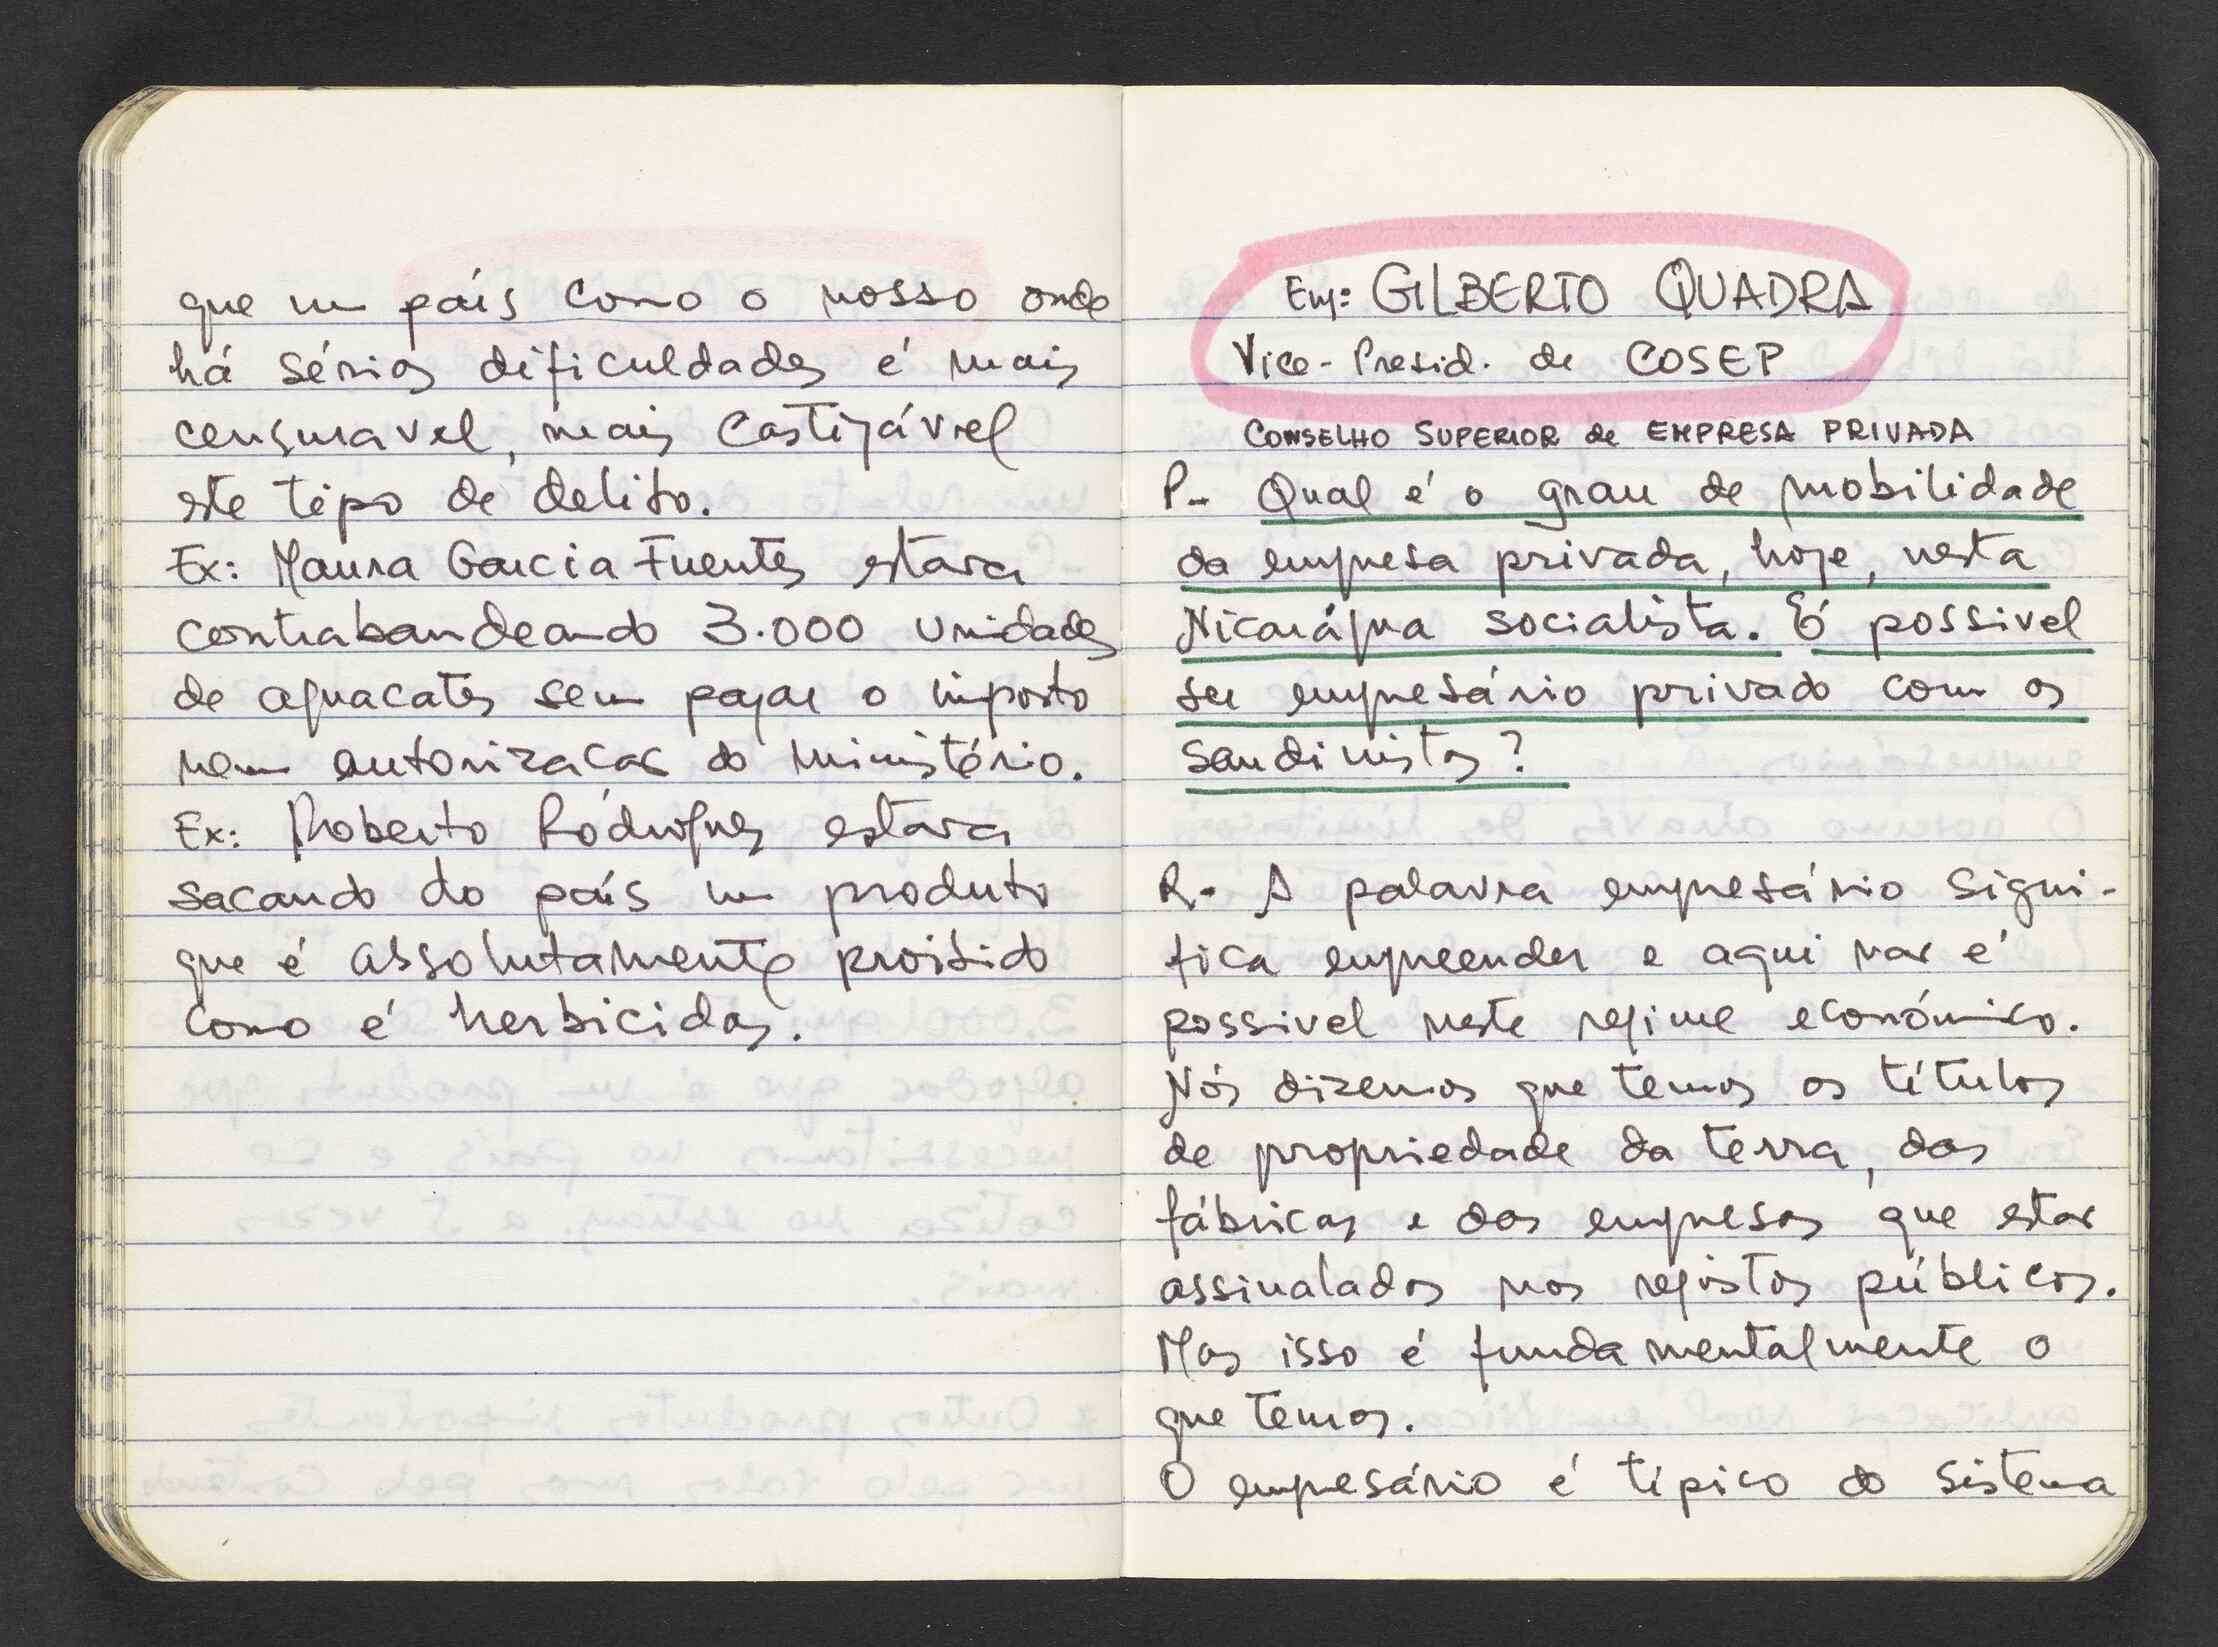 que um país como o nosso onde
há sérias dificuldades é mais
censuravel, mais castigável
este tipo de delito.
Ex: Maura Garcia Fuentes estava
contrabandeando 3.000 unidades
de aguacates sem pagar o imposto
nem autorizacao do ministério.
Ex: Roberto Ródrigues estava
sacando do país um produto
que é absolutamente proibido
como é herbicidas.
Eng: GILBERTO QUADRA
Vice-Presid. de COSEP
CONSELHO SUPERIOR de EMPRESA PRIVADA
P- Qual é o grau de mobilidade
da empresa privada, hoje, nesta
Nicarágua socialista. É possivel
ser empresário privado com os
sandinistas?
R- A palavra empresário signi-
fica empreender e aqui nao é
possivel neste regime económico.
Nós dizemos que temos os títulos
de propriedade da terra, das
fábricas e das empresas que estao
assinalados nos registos públicos.
Mas isso é fundamentalmente o
que temos.
O empresário é típico do sistema